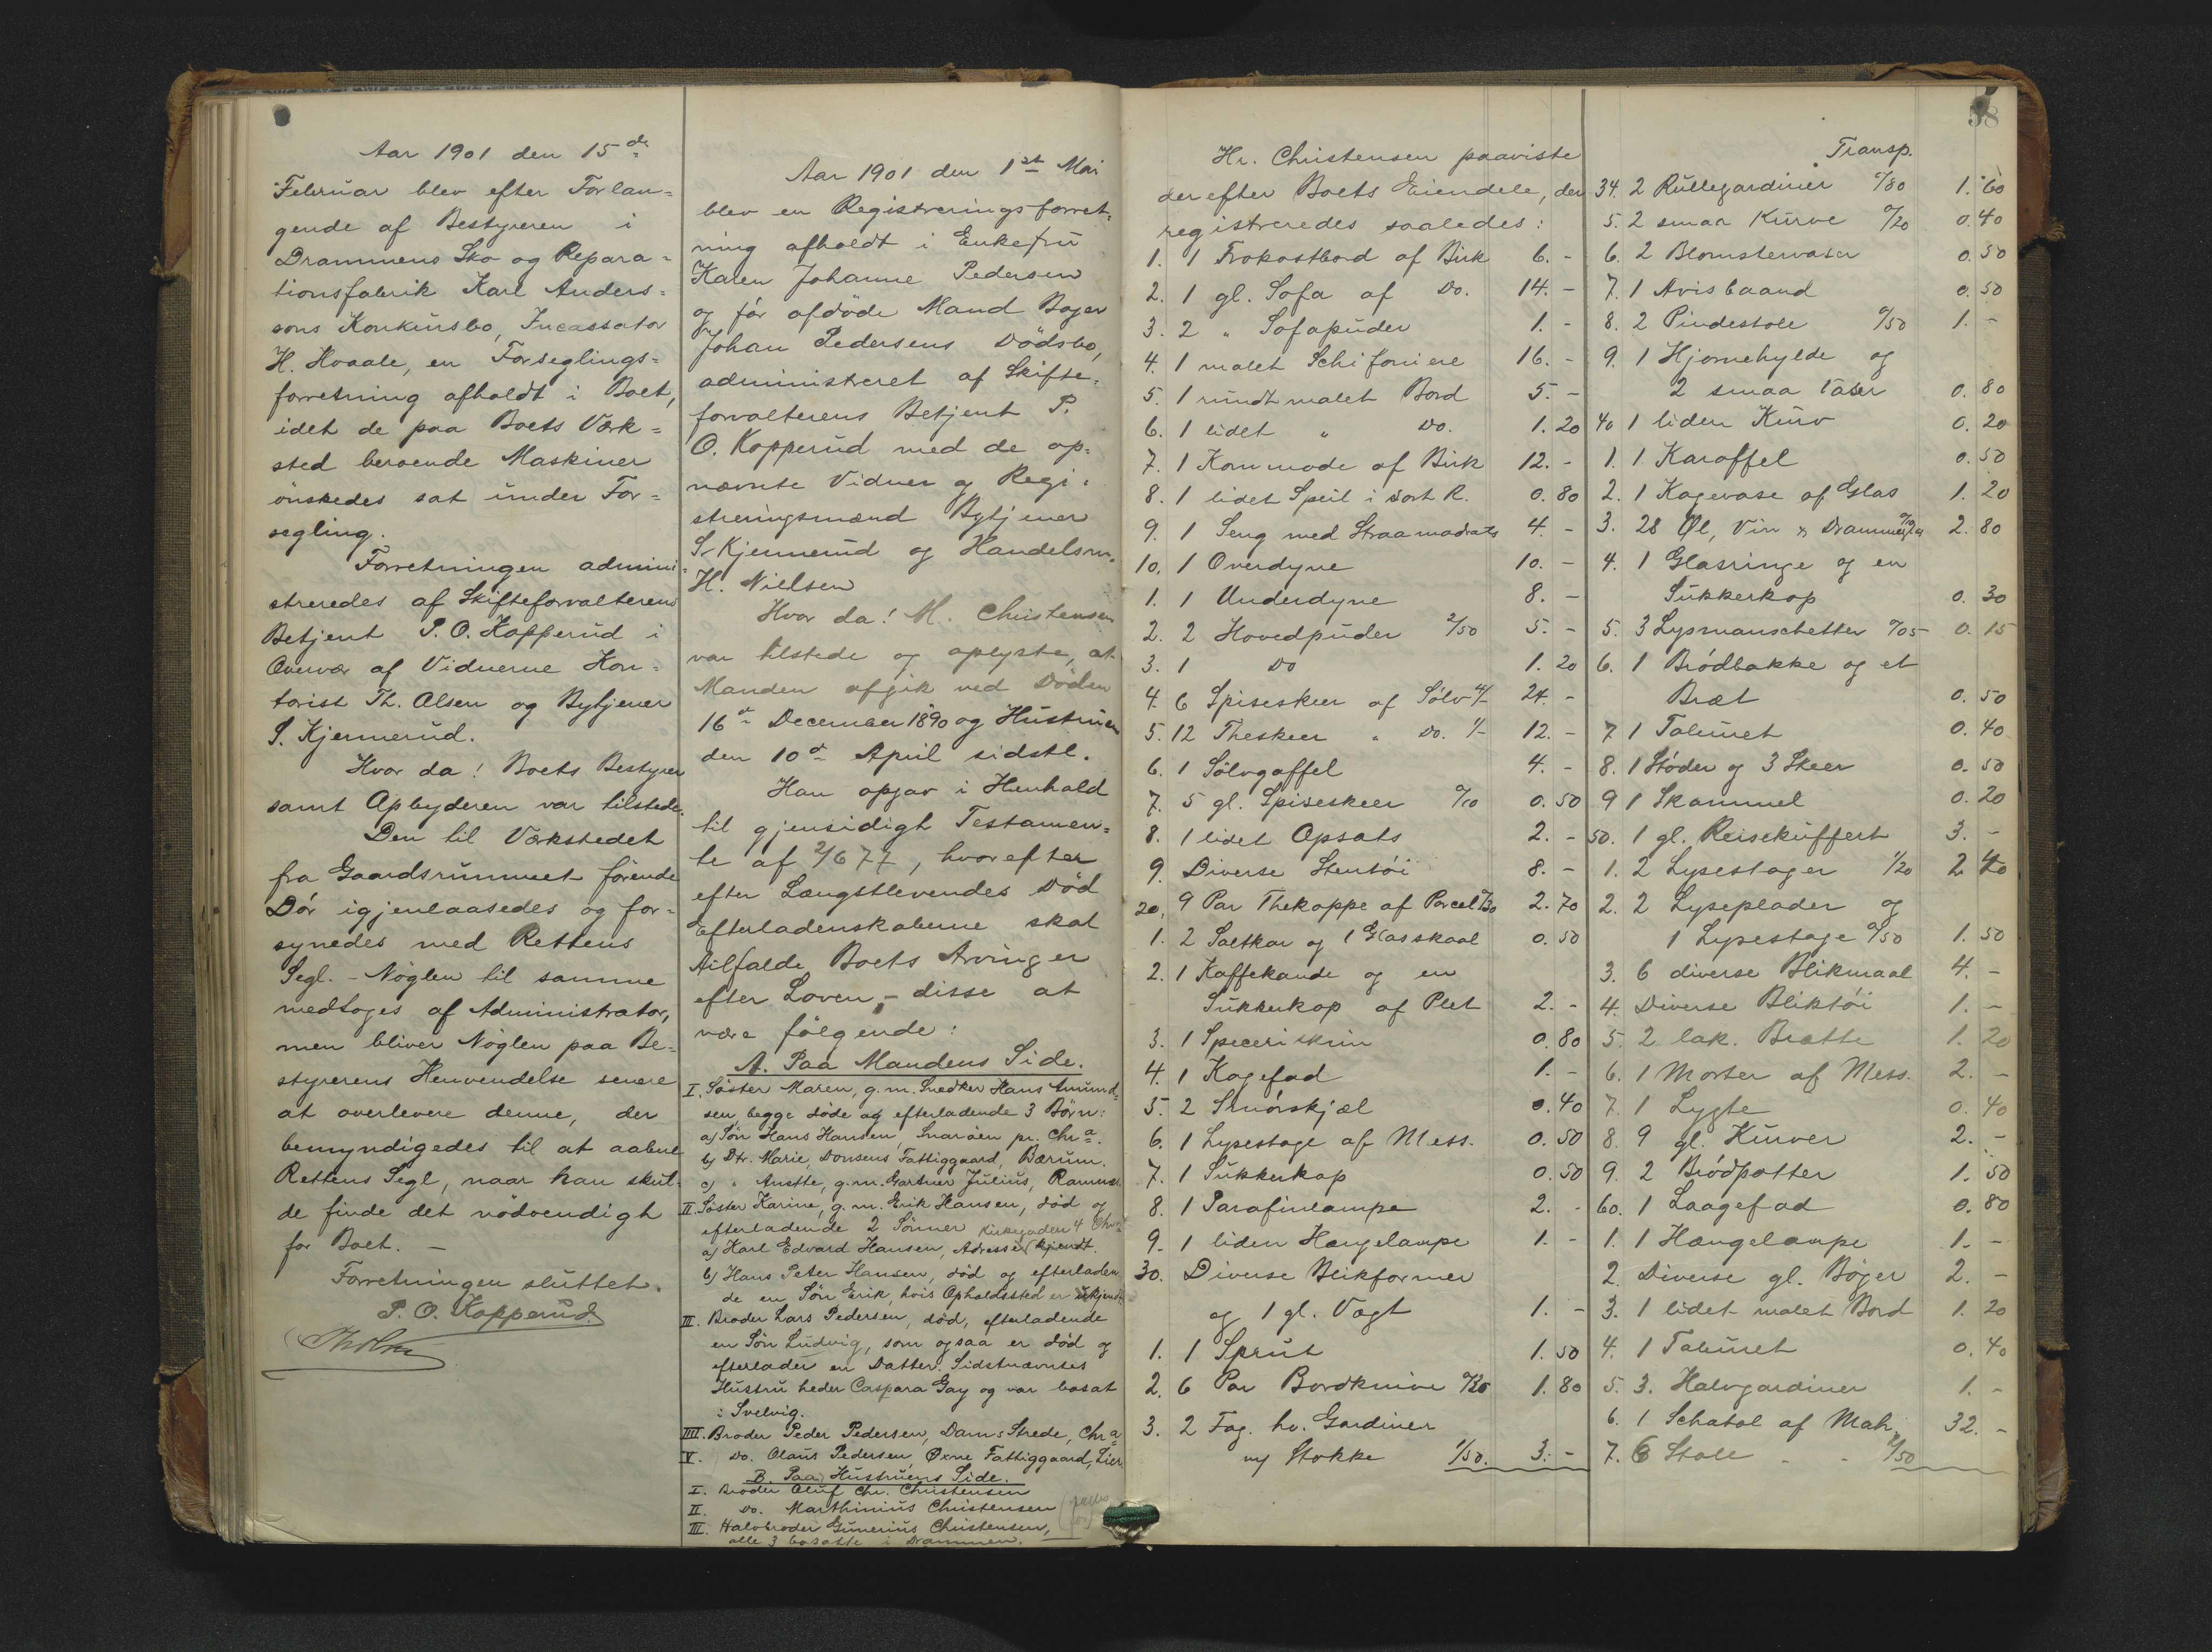 Aar 1901 den 15de
Februar blev efter Forlan=
gende af Bestyreren i
Drammens Sko og Repara=
tionsfabrik Karl Anders=
sons Konkursbo, Incassator
H. Hvaale, en Forseglings=
forretning afholdt i Boet,
idet de paa Boets Værk=
sted beroende Maskiner
ønskedes sat under For=
segling.
Forretningen admini=
streredes af Skifteforvalterens
Betjent P. O. Kopperud i
Overvær af Vidnerne Kon=
torist Th. Olsen og Bytjener
S. Kjennerud.
Hvor da! Boets Bestyrer
samt Opbyderen var tilstede.
Den til Værkstedet
fra Gaardsrummet førende
Dør igjenlaasedes og for=
synedes med Rettens
Segl. - Nøglen til samme
medtoges af Administrator,
men bliver Nøglen paa Be=
styrerens Henvendelse senere
at overlevere denne, der
bemyndigedes til at aabne
Rettens Segl, naar han skul=
de finde det nødvendigt
for Boet. -
Forretningen sluttet.
P. O. Kopperud.
Aar 1901 den 1st Mai
blev en Registreringsforret=
ning afholdt i Enkefru
Karen Johanne Pedersen
og før afdøde Mand Bager
Johan Pedersens Dødsbo,
administreret af Skifte=
forvalterens Betjent P.
O. Kopperud med de op=
nævnte Vidner og Regi=
streringsmænd Bytjener
S. Kjennerud og Handelsm.
H. Nielsen
Hvor da! M. Christensen
var tilstede og oplyste, at
Manden afgik ved Døden
16de December 1890 og Hustruen
den 10de April sidstl.
Han opgav i Henhold
til gjensidigt Testamen=
te af 2/6 77, hvorefter
efter Længstlevendes Død
Efterladenskaberne skal
tilfalde Boets Arvinger
efter Loven, - disse at
være følgende:
A. Paa Mandens Side.
I. Søster Maren, g.m. Snedker Hans Amund=
sen, begge døde og efterladende 3 Børn:
a) Søn Hans Hansen, Snarøen pr. Chra.
b) Dtr. Marie, Donsens Fattiggaard, Bærum.
c) " Anette, g.m. Gartner Julius,
II. Søster Karine, g.m. Erik Hansen, død og
efterladende 2 Sønner Kirkegaden 4 Chra
a) Karl Edvard Hansen, Adresse (kjendt.
b) Hans Peter Hansen, død og efterladen
de en Søn Erik, hvis Opholdssted er ukjendt
III. Broder Lars Pedersen, død, efterladende
en Søn Ludvig, som ogsaa er død og
efterlader en Datter. Sidstnævntes
Hustru heder Caspara Gay og var bosat
i Svelvig.
IIII. Broder Peder Pedersen, Dams Strede, Chra
V. Do. Olaus Pedersen, Øxne Fattiggaard, Lier
B. Paa Hustruens Side.
I. Broder Oluf Chr. Christensen
II. Do. Marthinius Christensen
III. Halvbroder Gunerius Christensen,
alle 3 bosatte i Drammen.
Hr. Christensen paaviste
derefter Boets Eiendele, der
registreredes saaledes:
1. 1 Frokostbord af Birk 6. -
2. 1 gl. Sofa af Do. 14. -
3. 2 " Sofapuder 1. -
4. 1 malet Schifoniere 16. -
5. 1 rundt malet Bord 5. -
6. 1 lidet " Do. 1. 20
7. 1 Kommode af Birk 12. -
8. 1 lidet Speil i sort R. 0. 80
9. 1 Seng med Straamadrats 4. -
10. 1 Overdyne 10. -
1. 1 Underdyne 8. -
2. 2 Hovedpuder 2/50 5. -
3. 1 Do 1. 20
4. 6 Spiseskeer af Sølv 4/- 24. -
5. 12 Theskeer " Do. 1/- 12. -
6. 1 Sølvgaffel 4. -
7. 5 gl. Spiseskeer 0/10 0. 50
8. 1 lidet Opsats 2. -
9. Diverse Stentøi 8. -
20. 9 Par Thekoppe af Porcel. 0/30 2. 70
1. 2 Saltkar og 1 Glasskaal 0. 50
2. 1 Kaffekande og en
Sukkerkop af Plet 2. -
3. 1 Speceriskrin 0. 80
4. 1 Kagefad 1. -
5. 2 Smørskjæl 0. 40
6. 1 Lysestage af Mess. 0. 50
7. 1 Sukkerkop 0. 50
8. 1 Parafinlampe 2. -
9. 1 liden Hængelampe 1. -
30. Diverse Blikformer
og 1 gl. Vægt 1. -
1. 1 Sprut 1. 50
2. 6 Par Bordknive 0/30 1. 80
3. 2 Fag. hv. Gardiner
m/ Stokke 1/50. 3. -
58
Transp.
34. 2 Rullegardiner 0/80 1. 60
5. 2 smaa Kurve 0/20 0. 40
6. 2 Blomstervaser 0. 50
7. 1 Avisbaand 0. 50
8. 2 Pindestole 0/50 1. -
9. 1 Hjørnehylde og
2 smaa Vaser 0. 80
40 1 liden Kurv 0. 20
1. 1 Karaffel 0. 50
2. 1 Kagevase af Glas 1. 20
3. 28 Øl, Vin & Dramme 0/10 2. 80
4. 1 Glasringe og en
Sukkerkop 0. 30
5. 3 Lysmanschetter 0/05 0. 15
6. 1 Brødbakke og et
Bræt 0. 50
7 1 Taburet 0. 40
8. 1 Støder og 3 Skeer 0. 50
9 1 Skammel 0. 20
50. 1 gl. Reisekuffert 3. -
1. 2 Lysestager 1/20 2 40
2. 2 Lyseplader og
1 Lysestage 0/50 1. 50
3. 6 diverse Blikmaal 4. -
4. Diverse Bliktøi 1. -
5. 2 lak. Brætte 1. 20
6. 1 Morter af Mess. 2. -
7. 1 Lygte 0. 40
8. 9 gl. Kurver 2. -
9. 2 Brødpotter 1. 50
60. 1 Laagefad 0. 80
1. 1 Hængelampe 1. -
2. Diverse gl. Bøger 2. -
3. 1 lidet malet Bord 1. 20
4. 1 Taburet 0. 40
5. 3. Halvgardiner 1. -
6. 1 Schatol af Mah. 32. -
7. 6 Stole " "